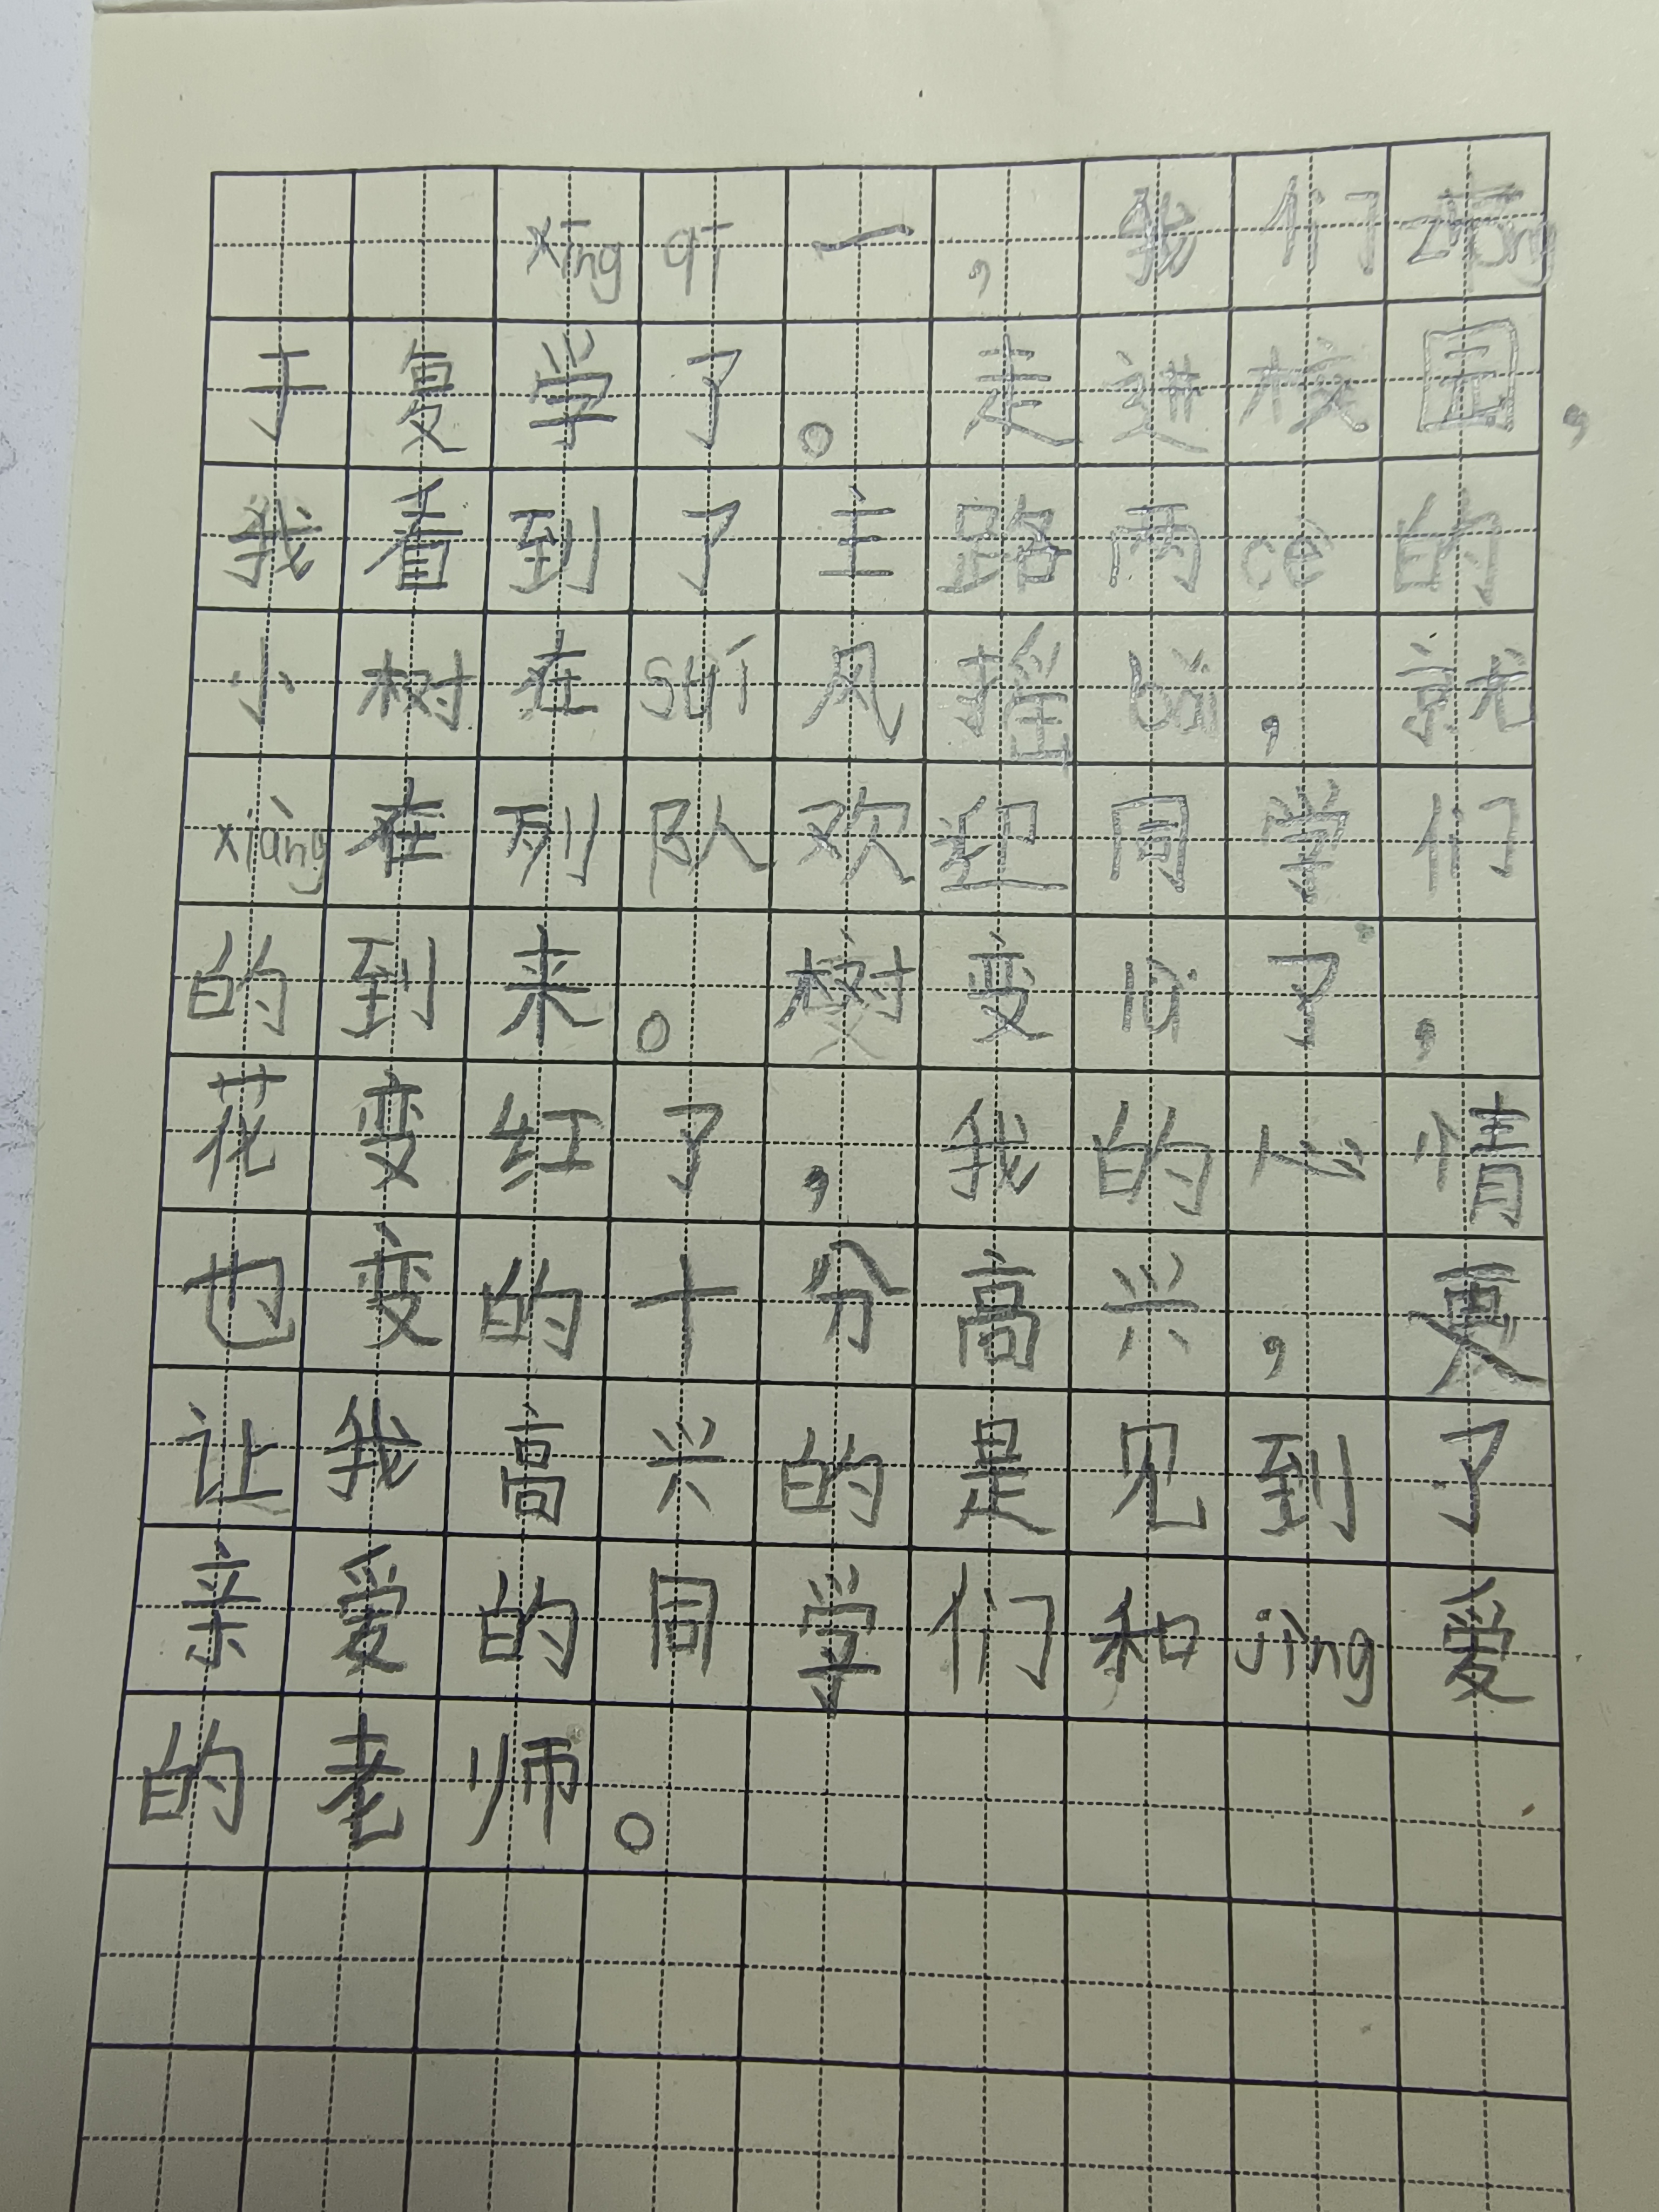 xīng qī一，我们zhōng
于复学了。走进校园，
我看到了主路两cè的
小树在suí风摇bǎi，就
xiàng在列队欢迎同学们
的到来。树变lǜ了，
花变红了，我的心情
也变的十分高兴，更
让我高兴的是见到了
亲爱的同学们和jìng爱
的老师。